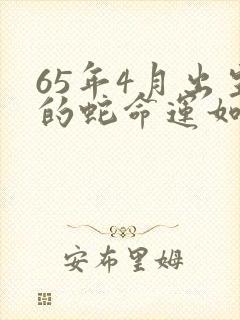 65年4月出生
的蛇命运如
安布里姆